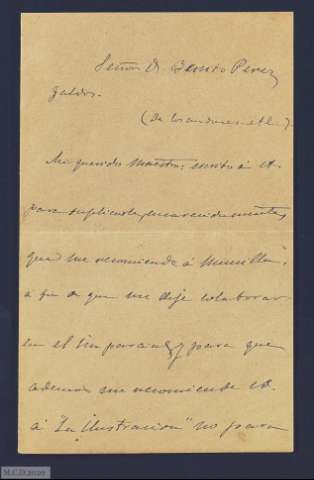 Señor D. Benito Perez
Galdos.
Mi querido maestro: escribo á V.
para suplicarle, encarecidamente,
que me recomiende á
á fin de que me deje colaborar
en el Imparcial, y para que
además me recomiende V.
á "La Ilustración" no para
M.C.D 2020